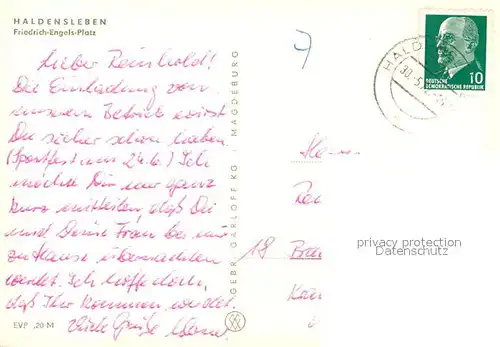 HALDENSLEBEN
Friedrich-Engels-Platz
Lieber Reinhold!
Die Einladung von
unserem Betrieb wirst
Du sicher schon haben.
(Sportfest am 24.6.) Ich
möchte Dir nur ganz
kurz mitteilen, daß Du
und Deine Frau bei mir
zu Hause übernachten
werdet. Ich hoffe doch,
daß Ihr kommen werdet.
Viele Grüße
EVP ,20 M
GEBR. GARLOFF KG., MAGDEBURG
7
HALDEN
30.-5.
DEUTSCHE
DEMOKRATISCHE REPUBLIK
10
18
privacy protection
Datenschutz